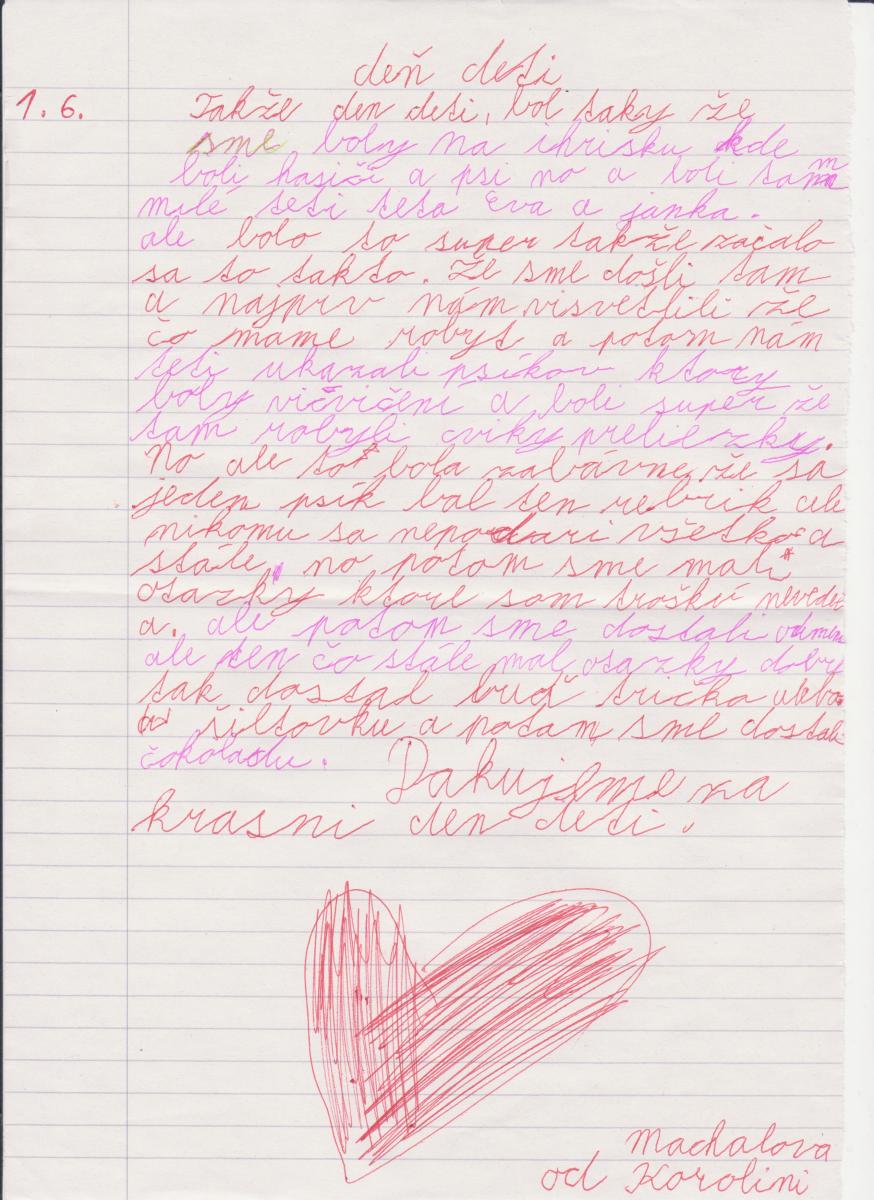 deň deti
1. 6. Takže den deti, bol taky že
sme boly na ihrisku kde
boli hasiči a psi no a boli tam
milé teti teta Eva a janka.
ale bolo to super takže začalo
sa to takto. Že sme došli tam
a najprv nám visvetlili že
čo mame robyt a potom nám
teti ukazali psíkov ktory
boly vičvičení a boli super že
tam robyli cviky preliezky.
No ale to bola zabávne že sa
jeden psík bal ten rebrik ale
nikomu sa nepodari všetko a
stále, no potom sme mali
otazky ktore som trošku nevedel
a. ale potom sme dostali
ale ten čo stále mal otazky dobry
tak dostad buď tričko alebo
šiltovku a potom sme dostali
čokoladu.
Dakujeme za
krasni den deti.
Machalova
od Karolini